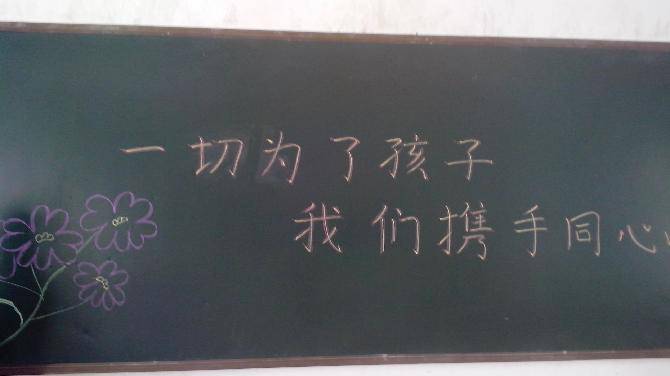 一切为了孩子
我们携手同心